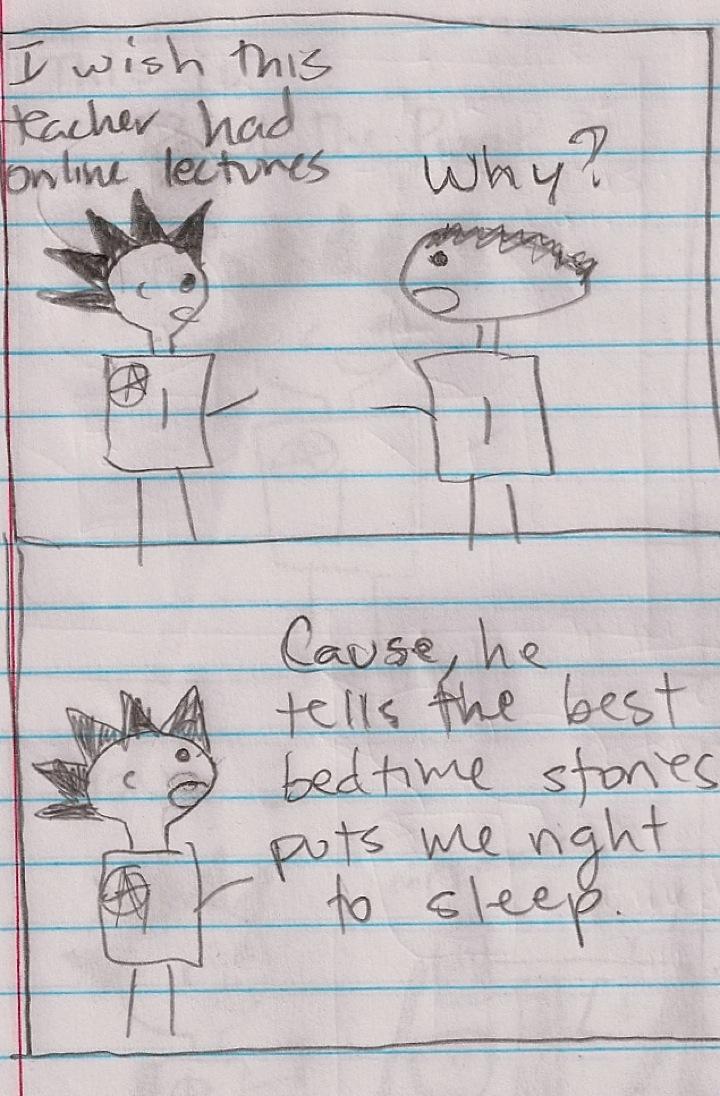 I wish this
teacher had
online lectures
Why?
Cause, he
tells the best
bedtime stories
puts me right
to sleep.